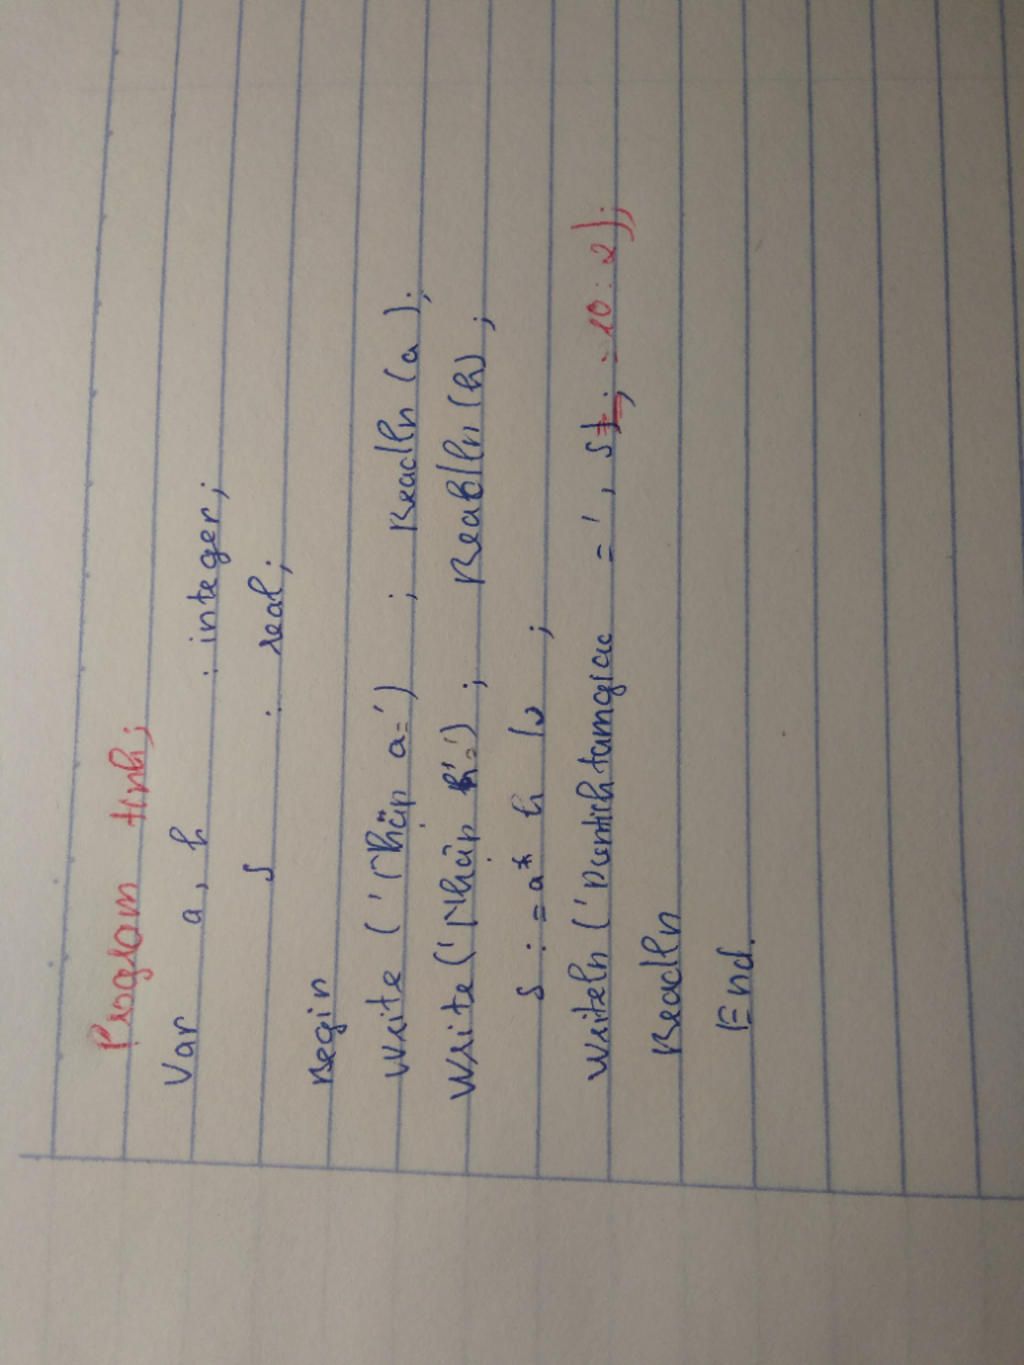 Program tinh;
Var a, h : integer;
S : real;
Begin
Write ('Nhập a=') ; Readln (a);
Write ('Nhập h=') ; Readln (h) ;
S := a * h / 2 ;
Writeln ('Dientichtamgiac =', S : 10 : 2);
Readln
End.